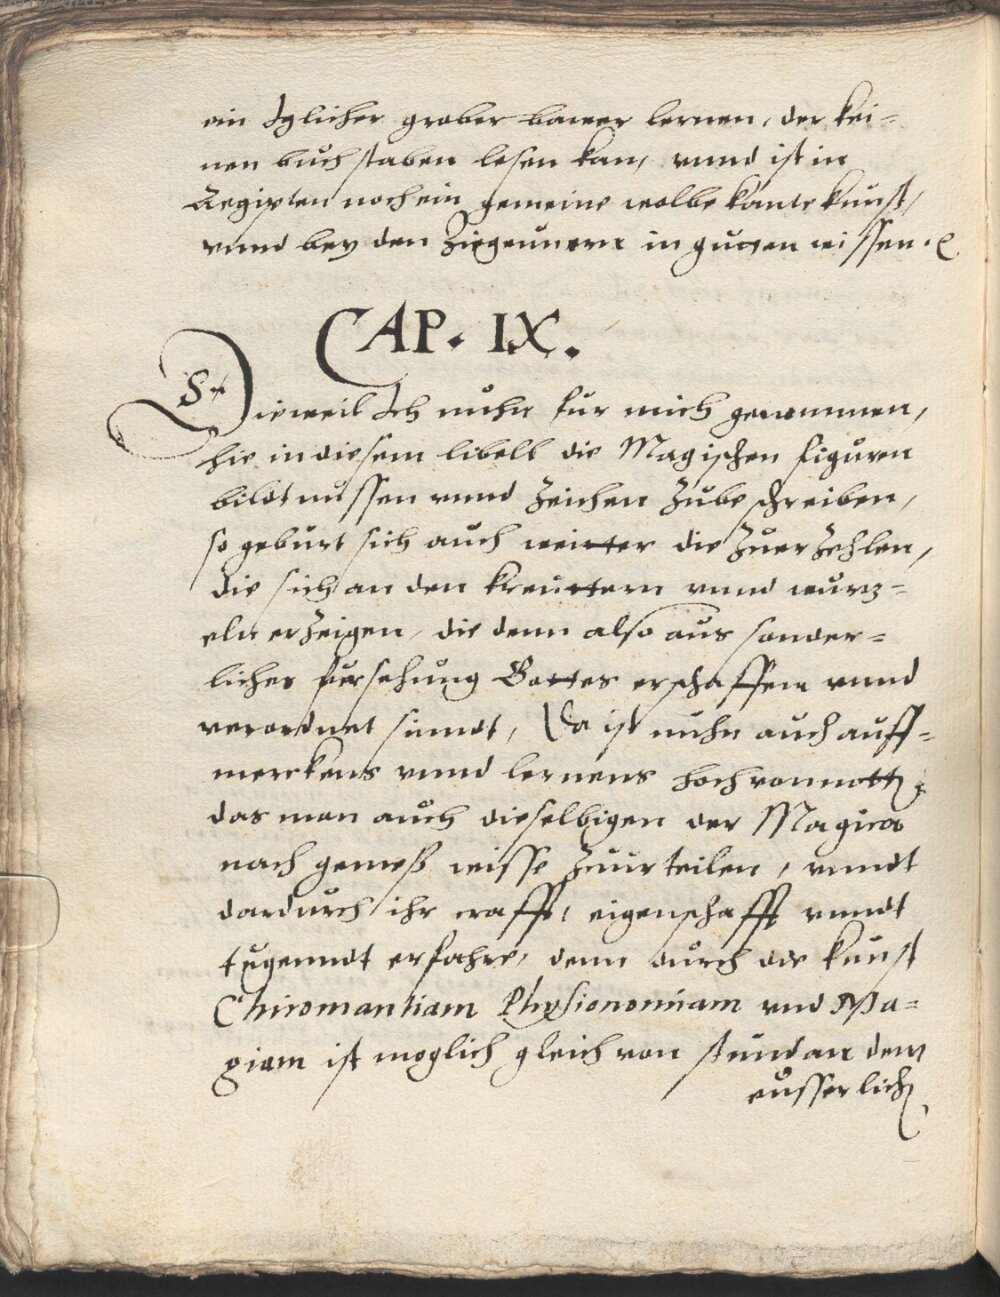 ein Iglicher grober bawer lernen, der kei-
nen buchstaben lesen kan, vnnd ist in
Aegipten noch ein gemeine wolbekante kunst,
vnnd bey den Ziegeunern in guttem wissen. ꝛ
CAP. IX.
Dieweil Ich nuhn fur mich genommen,
hie in diesem libell die Magischen figuren
bildtnussen vnnd Zeichen Zubeschreiben,
so geburt sich auch weitter die ZuerZehlen,
die sich an den kreuttern vnnd wurtz-
eln erZeigen, die denn also aus sonder-
licher fursehung Gottes erschaffenn vnnd
verordnet sinndt, Da ist nuhn auch auff-
merckens vnnd lernens hoch vonnotten,
das man auch dieselbigen der Magica
nach gemeß wisse Zuurteilen, vnndt
dardurch ihr crafft, eigenschafft vnndt
tugenndt erfahre, denn durch die kunst
Chiromantiam Physionomiam vnd Ma-
giam ist moglich gleich von stund an dem
eusserlichen